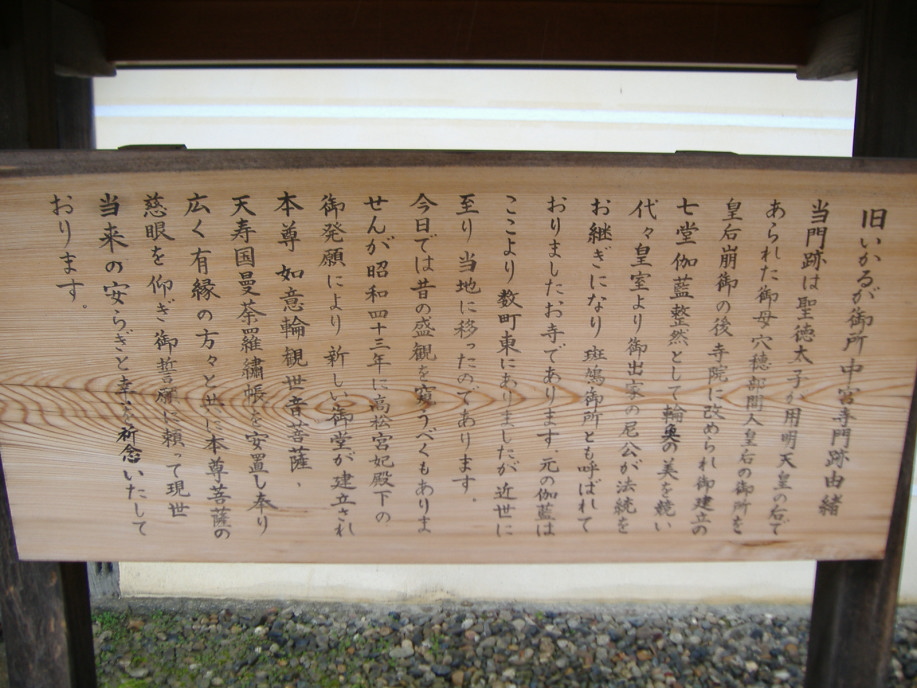 旧いかるが御所中宮寺門跡由緒
当門跡は聖徳太子が用明天皇の后で
あられた御母穴穂部間人皇后の御所を
皇后崩御の後寺院に改められ御建立の
七堂伽藍整然として輪奐の美を競い
代々皇室より御出家の尼公が法統を
お継ぎになり斑鳩御所とも呼ばれて
おりましたお寺であります、元の伽藍は
ここより数町東にありましたが近世に
至り当地に移ったのであります。
今日では昔の盛観を窺うべくもありま
せんが昭和四十三年に高松宮妃殿下の
御発願により新しい御堂が建立され
本尊如意輪観世音菩薩、
天寿国曼荼羅繍帳を安置し奉り
広く有縁の方々と共に本尊菩薩の
慈眼を仰ぎ御誓願に頼って現世
当来の安らぎと幸を祈念いたして
おります。